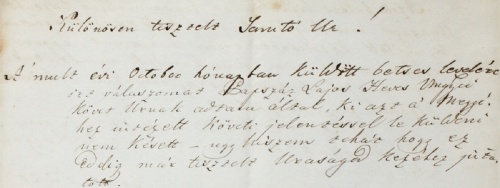 Különösen tisztelt Tanító Úr!
A' mult évi October hónapban küldött betses levelére
írt válaszomat Lajos Heves Megyei
Követ Urnak adtam által, ki azt a' Megyé-
hez intézett követi jelentéssel le küldeni
nem késett – ugy hiszem tehát hogy ez
eddig már tisztelt Uraságod kezéhez juta-
tott.